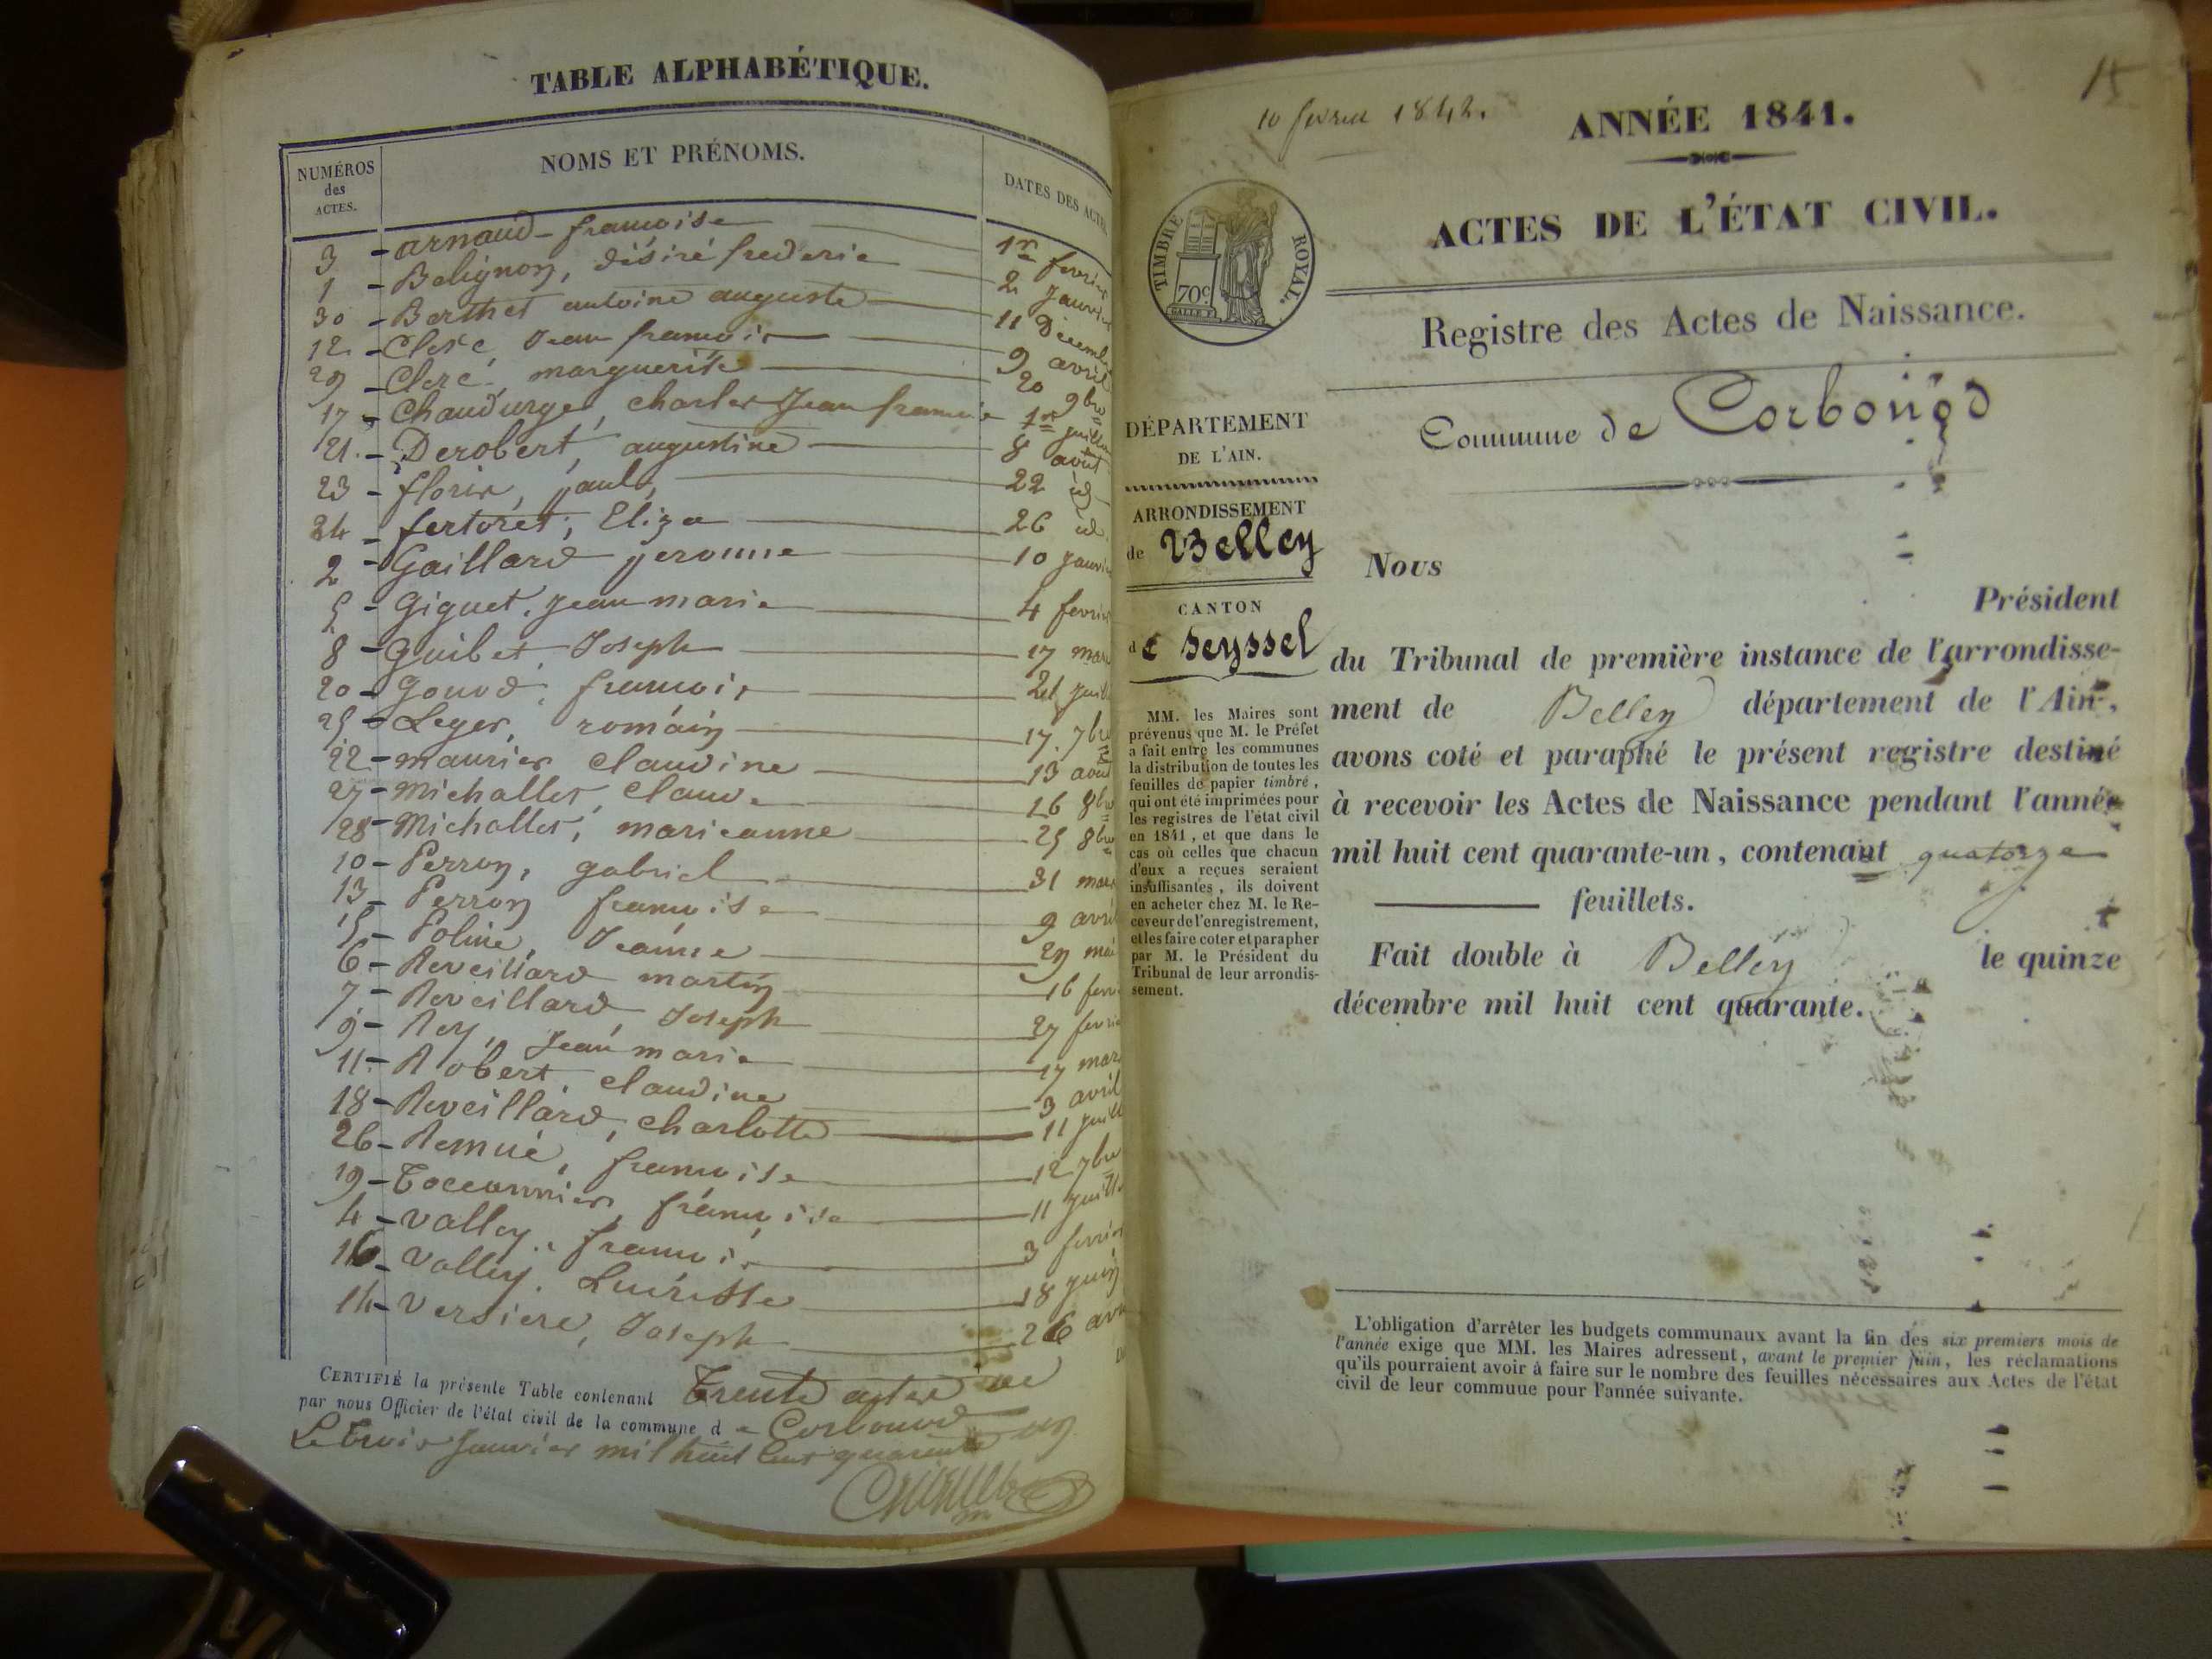 TABLE ALPHABÉTIQUE.
NUMÉROS
des
ACTES.
NOMS ET PRÉNOMS.
DATES DES ACTES
3 - arnaud - francoise 1er fevrier
1 - Belignon, désiré frederic 2 Janvier
30 - Berthet antoine auguste 11 Décemb
12 - Clerc, Jean francois 9 avril
29 - Clerc marguerite 20 9bre
17 - Chaudurge, charles Jean francois 1er juillet
21 - Derobert, augustine 8 août
23 - florin, paul 22 id
24 - fertoret, Eliza 26 id
2 - Gaillard peronne 10 Janvi
5 - Giguet, Jean marie 4 fevrier
8 - Guibet, Joseph 17 mars
20 - Gonod, francois 21 juill
25 - Leger, romain 17. 7bre
22 - maurier claudine 13 aout
27 - Michallet, Claude 16 8bre
28 - Michallet, marieanne 25 8bre
10 - Perron, gabriel 31 mars
13 - Perron francoise 9 avril
15 - Poline, Jeanne 29 mai
6 - Reveillard martin 16 fevr
7 - Reveillard Joseph 27 fevrie
9 - Rey, Jean marie 17 mar
11 - Robert, claudine 3 avril
18 - Reveillard, charlotte 11 juill
26 - Remue, francoise 12 7bre
19 - Toccannier, francoise 11 juille
4 - Valley, francois 3 fevrier
16 - Valley. Lucresse 18 juin
14 - Versiere, Joseph 26 avri
CERTIFIÉ la présente Table contenant Trente actes
par nous Officier de l'état civil de la commune de Corbonod
Le trois Janvier mil huit Cent quarante un
10 fevrier 1842.
15
ANNÉE 1841.
ACTES DE L'ÉTAT CIVIL.
TIMBRE ROYAL.
70c.
Registre des Actes de Naissance.
Commune de Corbonod
DÉPARTEMENT
DE L'AIN.
ARRONDISSEMENT
de Belley
CANTON
de Seyssel
MM. les Maires sont
prévenus que M. le Préfet
a fait entre les communes
la distribution de toutes les
feuilles de papier timbré,
qui ont été imprimées pour
les registres de l'état civil
en 1841, et que dans le
cas où celles que chacun
d'eux a reçues seraient
insuffisantes, ils doivent
en acheter chez M. le Re-
ceveur de l'enregistrement,
et les faire coter et parapher
par M. le Président du
Tribunal de leur arrondis-
sement.
Nous
Président
du Tribunal de première instance de l'arrondisse-
ment de Belley département de l'Ain,
avons coté et paraphé le présent registre destiné
à recevoir les Actes de Naissance pendant l'année
mil huit cent quarante-un, contenant quatorze
feuillets.
Fait double à Belley le quinze
décembre mil huit cent quarante.
L'obligation d'arrêter les budgets communaux avant la fin des six premiers mois de
l'année exige que MM. les Maires adressent, avant le premier juin, les réclamations
qu'ils pourraient avoir à faire sur le nombre des feuilles nécessaires aux Actes de l'état
civil de leur commune pour l'année suivante.